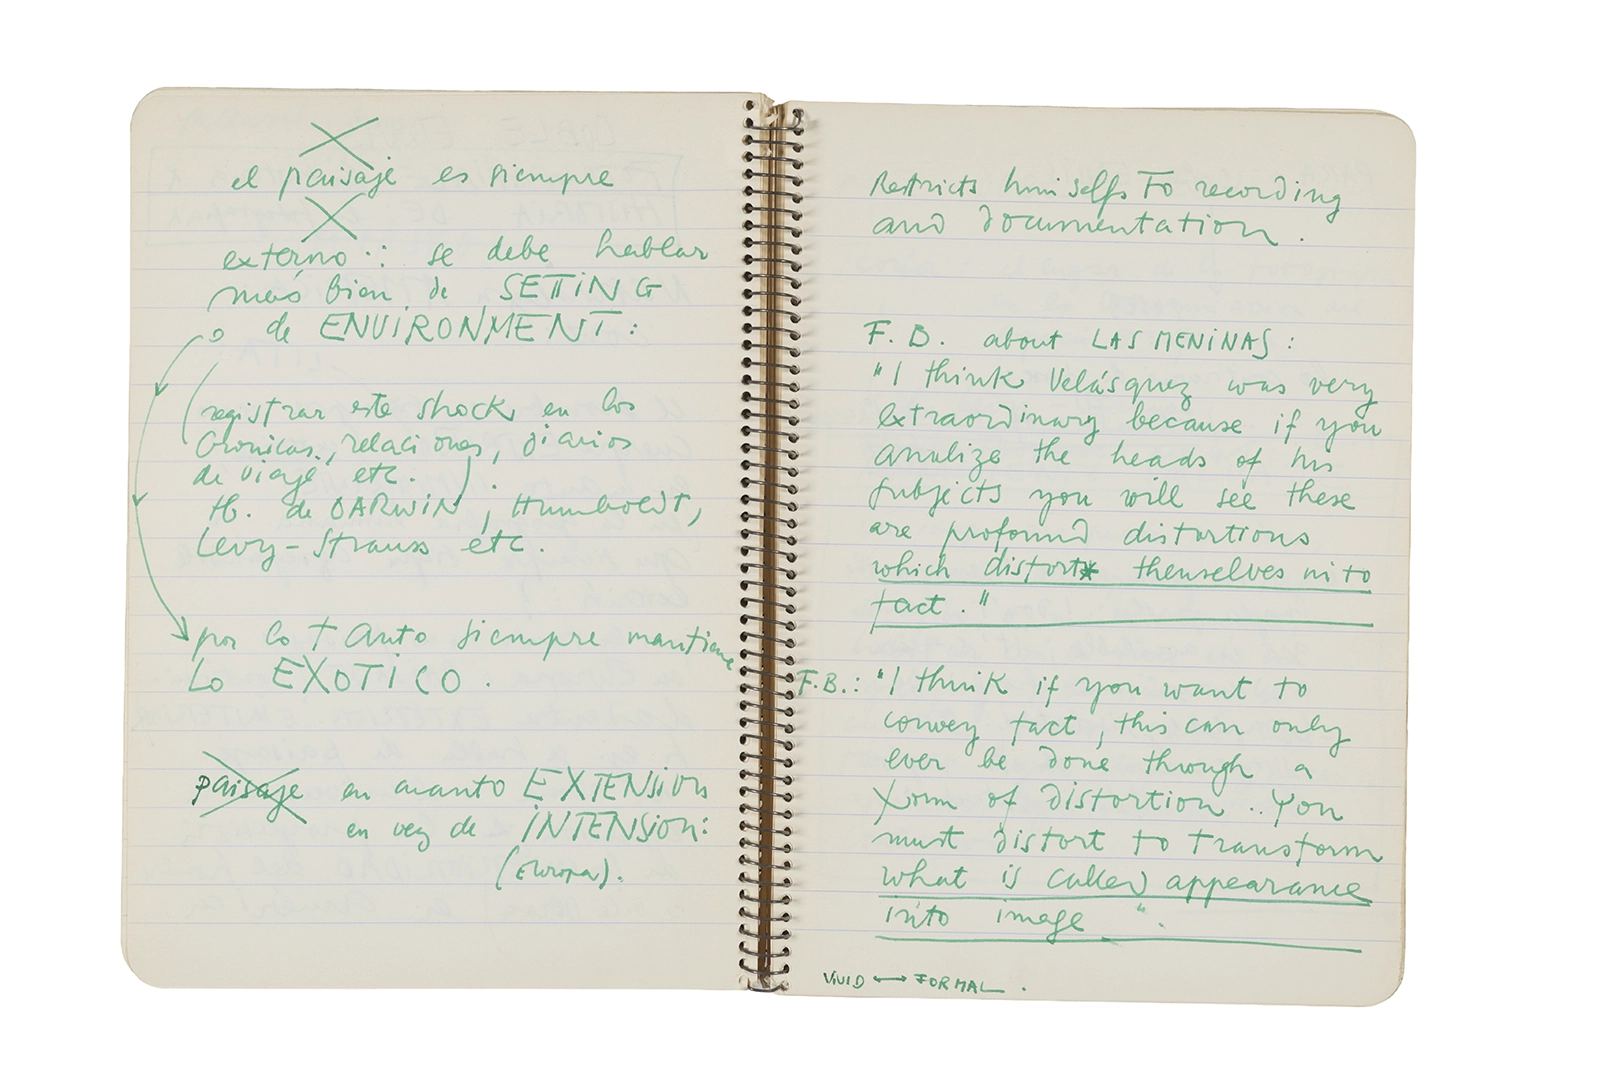 el paisaje es siempre
externo.: se debe hablar
mas bien de SETTING
o de ENVIRONMENT:
(registrar este shock en los
Cronicas, relaciones, diarios
de viaje etc.).
tb. de DARWIN, Humboldt,
Levy-Strauss etc.
por lo tanto siempre mantiene
Lo EXOTICO.
paisaje en cuanto EXTENSION
en vez de INTENSION:
(Europa).
Restricts himselfs To recording
and documentation.
F. B. about LAS MENINAS:
"I think Velásquez was very
extraordinary because if you
analize the heads of his
subjects you will see these
are profound distortions
which distort themselves into
fact."
F.B.: "I think if you want to
convey fact, this can only
ever be done through a
form of distortion.. You
must distort to transform
what is called appearance
into image".
VIVID ⟷ FORMAL.